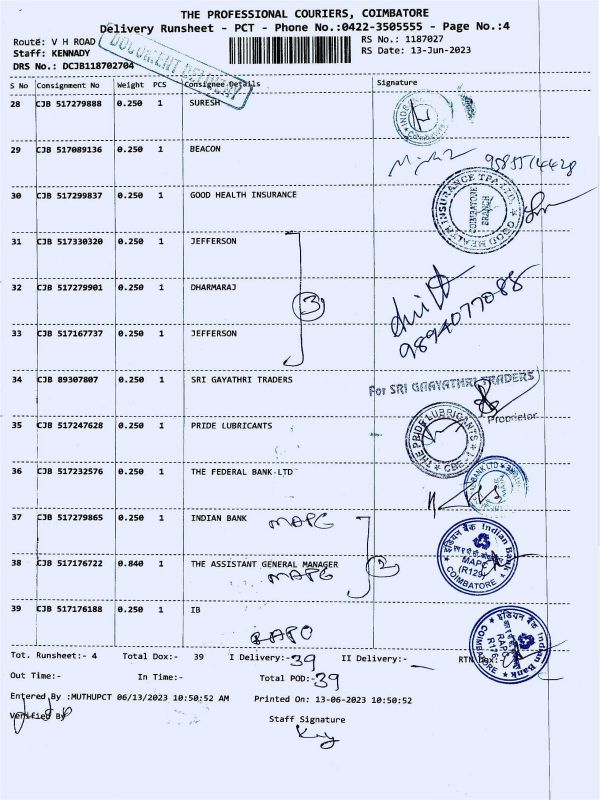 THE PROFESSIONAL COURIERS, COIMBATORE
Delivery Runsheet - PCT - Phone No.:0422-3505555 - Page No.:4
Route: V H ROAD
RS No.: 1187027
Staff: KENNADY
RS Date: 13-Jun-2023
DRS No.: DCJB118702704
S No Consignment No Weight PCS Consignee Details Signature
28 CJB 517279888 0.250 1 SURESH
29 CJB 517089136 0.250 1 BEACON
9585514428
30 CJB 517299837 0.250 1 GOOD HEALTH INSURANCE
GOOD HEALTH INSURANCE TPA LTD.
COIMBATORE
BRANCH
31 CJB 517330320 0.250 1 JEFFERSON
32 CJB 517279901 0.250 1 DHARMARAJ
3
9894077088
33 CJB 517167737 0.250 1 JEFFERSON
34 CJB 89307807 0.250 1 SRI GAYATHRI TRADERS
For SRI GAAYATHRI TRADERS
Proprietor
35 CJB 517247628 0.250 1 PRIDE LUBRICANTS
THE PRIDE LUBRICANTS
36 CJB 517232576 0.250 1 THE FEDERAL BANK-LTD
BANK LTD
37 CJB 517279865 0.250 1 INDIAN BANK MAPC
इंडियन बैंक Indian Bank
MAPC
(R129)
COIMBATORE
38 CJB 517176722 0.840 1 THE ASSISTANT GENERAL MANAGER
MAPC
2
39 CJB 517176188 0.250 1 IB
RAPC
इंडियन बैंक
RAPC
R176
COIMBATORE
Indian Bank
Tot. Runsheet:- 4 Total Dox:- 39 I Delivery:-39 II Delivery:- RTN Dox:-
Out Time:- In Time:- Total POD:-39
Entered By :MUTHUPCT 06/13/2023 10:50:52 AM Printed On: 13-06-2023 10:50:52
Verified By
Staff Signature